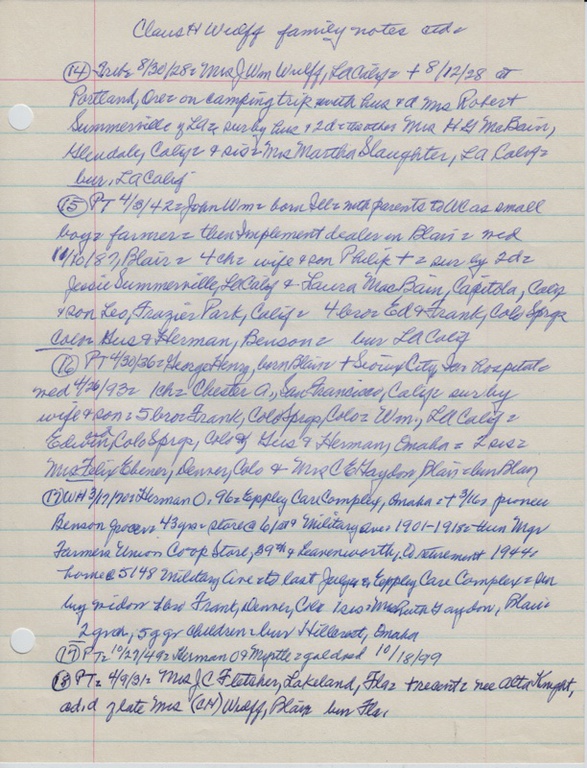 Claus H Wulff family notes ctd=
(14) Trib= 8/30/28= Mrs J Wm Wulff, LA Calif= + 8/12/28 at
Portland, Ore= on camping trip with hus & d Mrs Robert
Summerville of LA= sur by hus & 2d= another Mrs H G McBain,
Glendale, Calif= & sis= Mrs Martha Slaughter, LA Calif=
bur, LA Calif
(15) PT 4/3/42= John Wm= born Ill= with parents to WC as small
boy= farmer= then Implement dealer in Blair= wed
11/10/87, Blair= 4 ch= wife & son Philip += sur by 2d=
Jessie Summerville, LA Calif & Laura MacBain, Capitola, Calif
& son Leo, Frazier Park, Calif= 4 bro= Ed & Frank, Colo Sprgs
Colo= Gus & Herman, Benson= bur LA Calif
(16) PT 4/30/36= George Henry, born Blair= + Sioux City, Ia= Hospital=
wed 4/26/93= 1ch= Chester A., San Francisco, Calif= sur by
wife & son= 5 bro= Frank, Colo Sprgs, Colo= Wm., LA Calif=
Edwin, Colo Sprgs, Colo & Gus & Herman, Omaha= 2 sis=
Mrs Felix Ebener, Denver, Colo & Mrs C E Haydon, Blair= bur Blair
(17) WH 3/17/70= Herman O= 96= Eppley Care Complex, Omaha= + 3/16= pioneer
Benson grocer= 43 yrs= store @ 61st & Military Ave= 1901-1918= then Mgr
Farmers Union Co-op Store, 39th & Leavenworth, to retirement 1944=
home @ 5148 Military Ave= to last July & Eppley Care Complex= sur
by widow 1 bro= Frank, Denver, Colo 1 sis= Mrs Ruth Haydon, Blair=
2 grch, 5 g gr children= bur Hillcrest, Omaha
(17) PT= 10/27/49= Herman O & Myrtle= gold wed 10/18/99
(18) PT= 4/9/31= Mrs J C Fletcher, Lakeland, Fla= + recent= nee Alta Knight,
ad. d of late Mrs (CH) Wulff, Blair bur Fla.